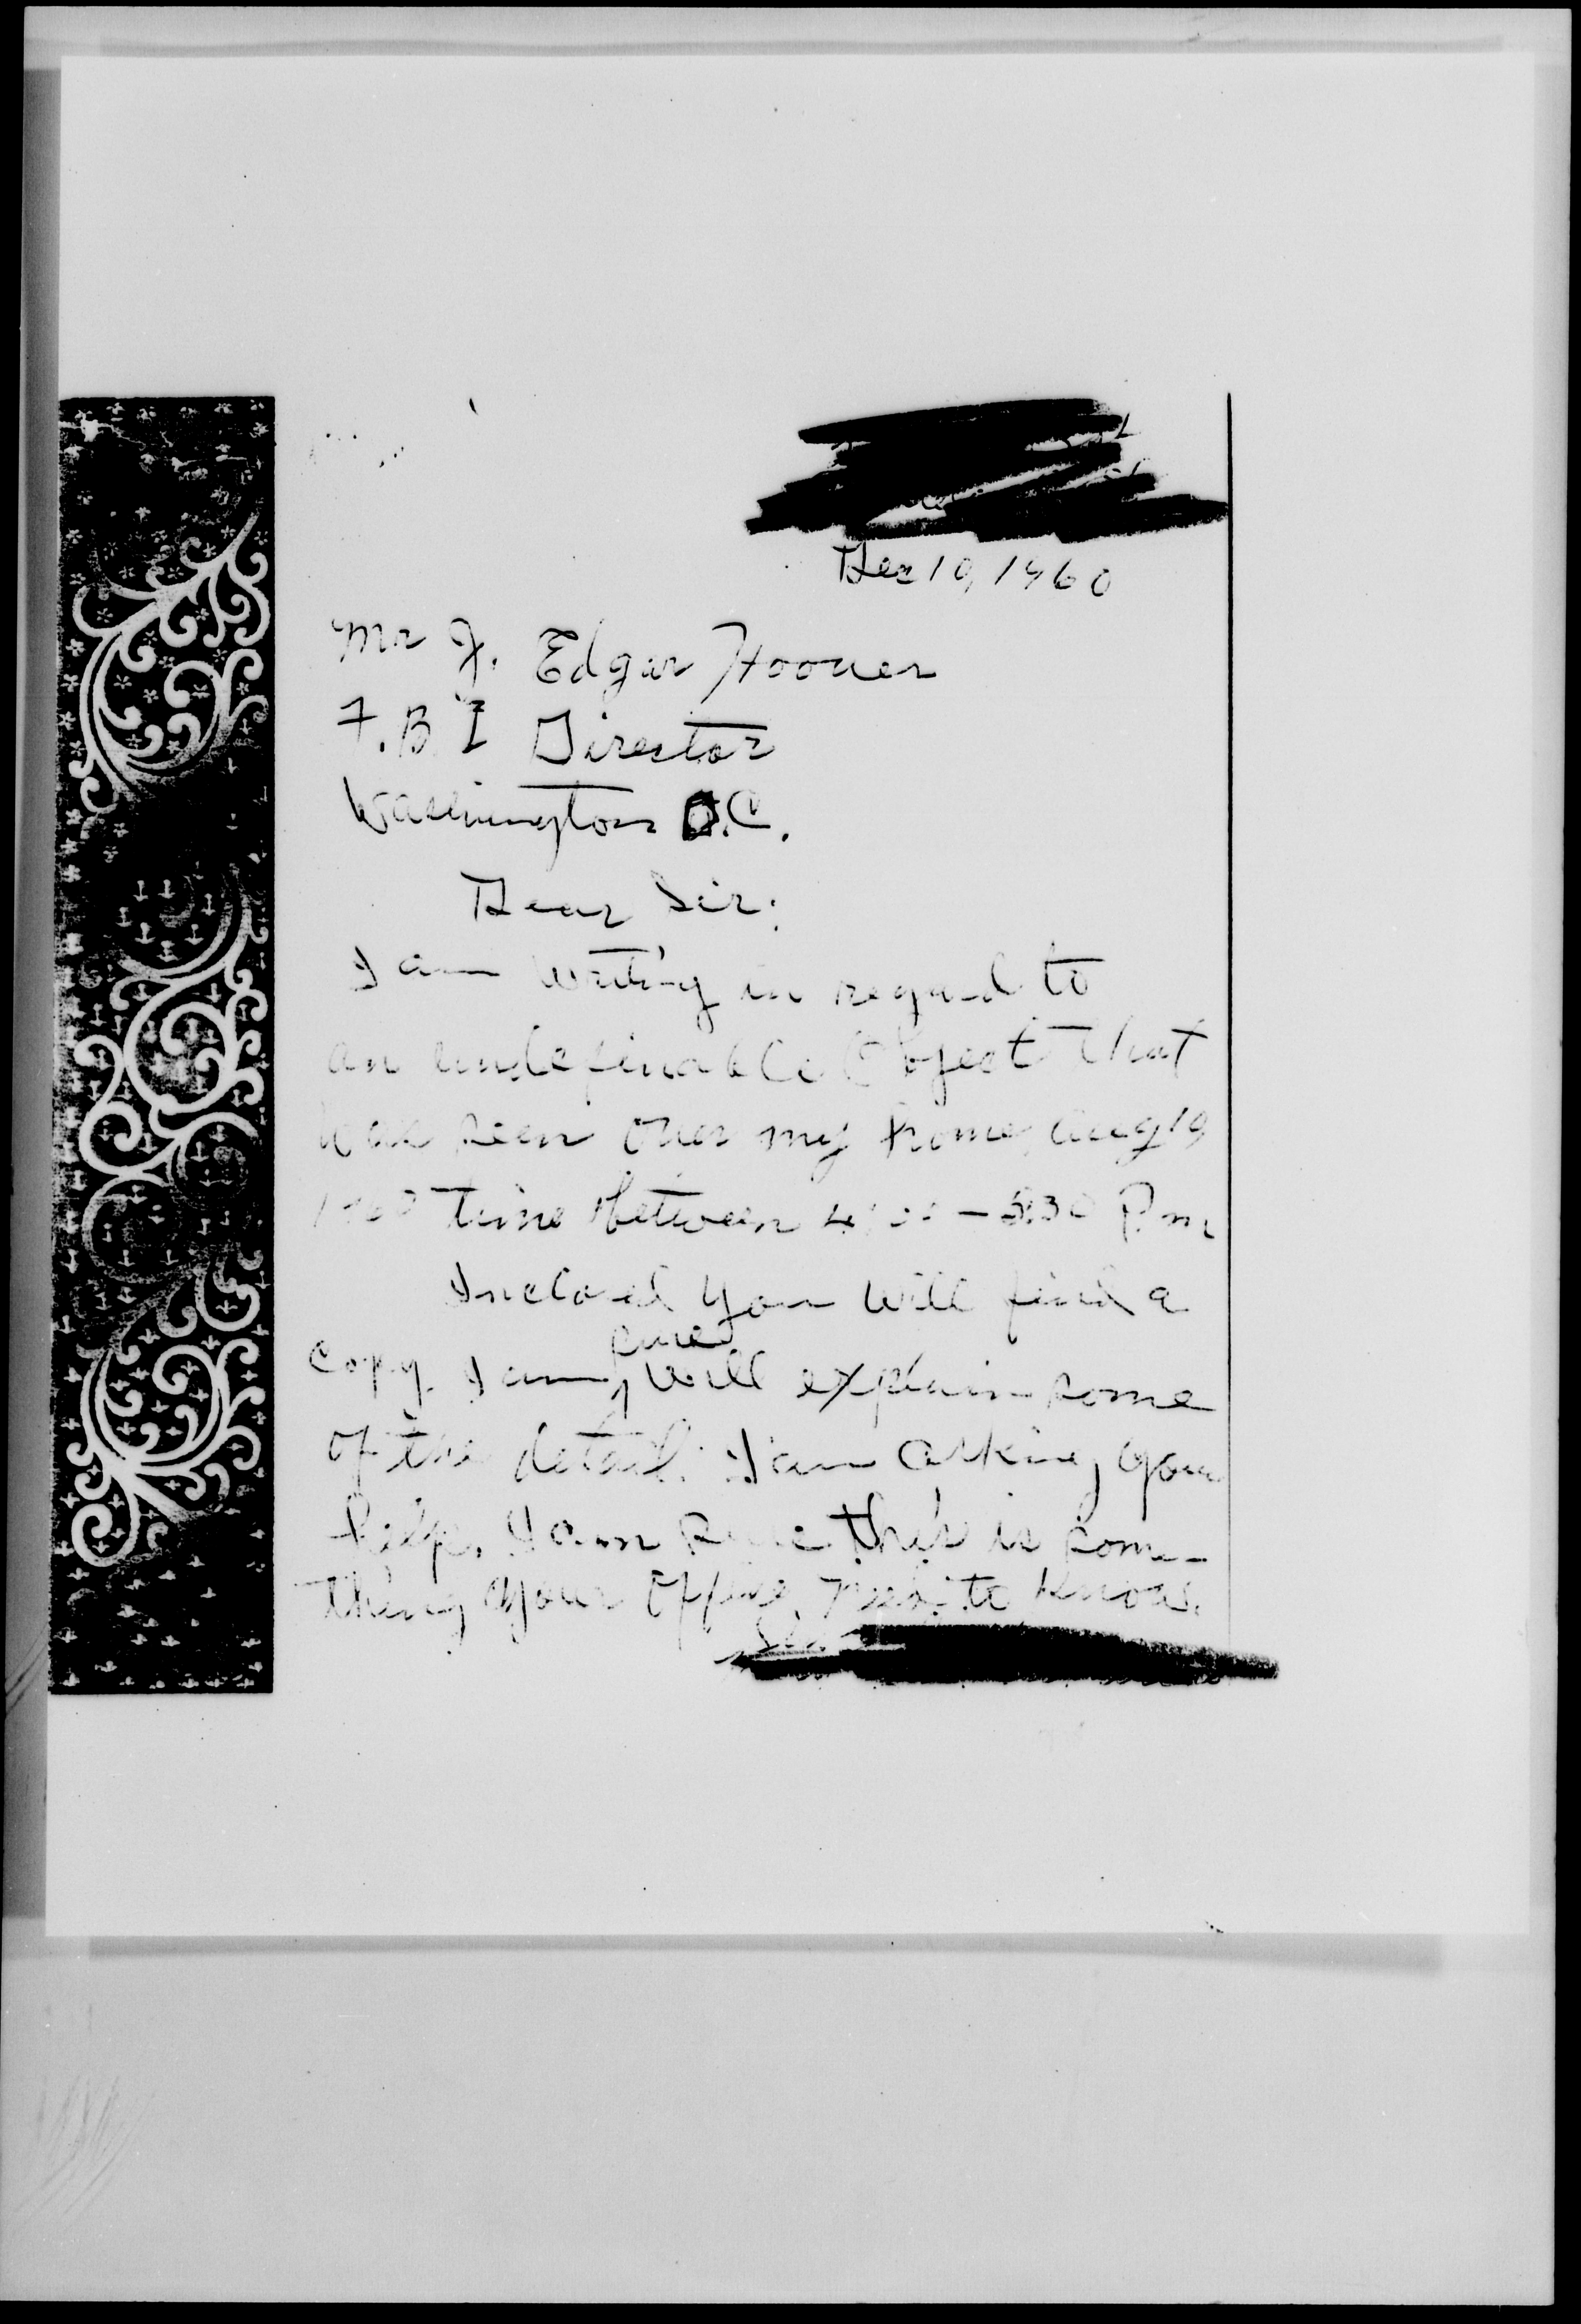 Dec 19, 1960
Mr J. Edgar Hoover
F.B.I Director
Washington D.C.
Dear Sir:
I am writing in regard to
an undefinable Object that
was seen over my home, Aug 19
1960 time between 4:00 - 5:30 P.m
Inclosed you will find a
copy. I am sure will explain some
of the detail. I am asking your
help. I am sure this is some-
thing your Office need to know.